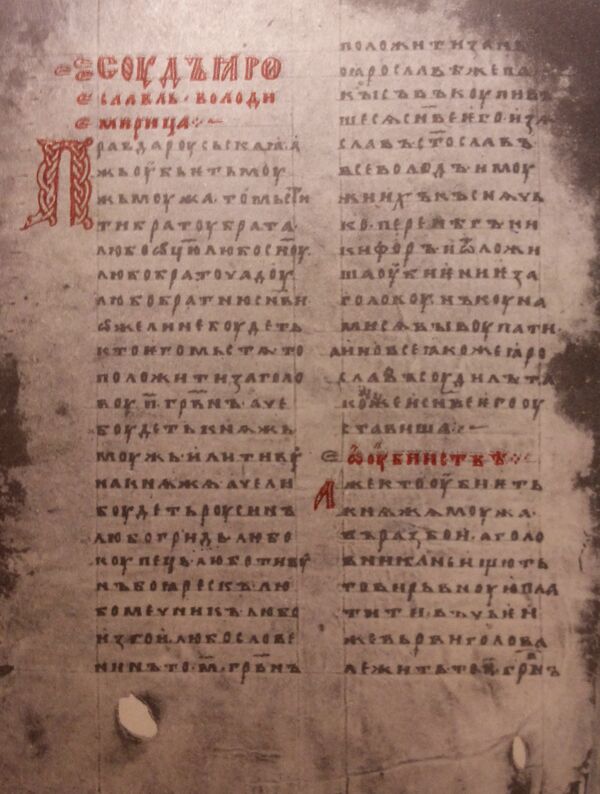 СОУДЪ ꙖРО
СЛАВЛЬ · ВОЛОДИ
МИРИЦА⁘
Правда роусьскаꙗ · а
жь оубьить моу
жь моужа · то мьсти
ти братоу брата ·
любо ѿцю любо сн҃оу ·
любо братоучадоу ·
любо братню сн҃ви
ѡже ли не боудеть
кто ѥго мьстѧ то
положити за голо
воу · п҃ · грв҃нъ · аче
боудеть кнѧжь
моужь · или тиву
на кнѧжѧ · аче ли
боудеть роусинъ
любо гридь · любо
коупець · любо тиву
нъ боꙗрескъ · лю
бо мечникъ · любо
изгои · любо слове
нинъ · то · м҃ · грв҃нъ
положити за нь
о ꙗрославѣ же па
кы съвъкоупивъ
шесѧ сн҃ве ѥго · изѧ
славъ · ст҃ославъ
всеволодъ · и моу
жи ихъ · къснѧчь
ко · перенѣгъ · ни
кифоръ · и ѿложи
ша оубиѥниѥ за
головоу · нъ коуна
ми сѧ выкоупати ·
а ино все ꙗкоже ꙗро
славъ соудилъ · та
коже и сн҃ве ѥго оу
ставиша⁘
ѡ оубииствѣ⁘
Аже кто оубиѥть
кнѧжѧ моужа ·
въ разбои · а голо
вника не ищють
то вирьвноую пла
тити · въ чьѥи
же вьрви голова
лежить то · п҃ · грв҃нъ